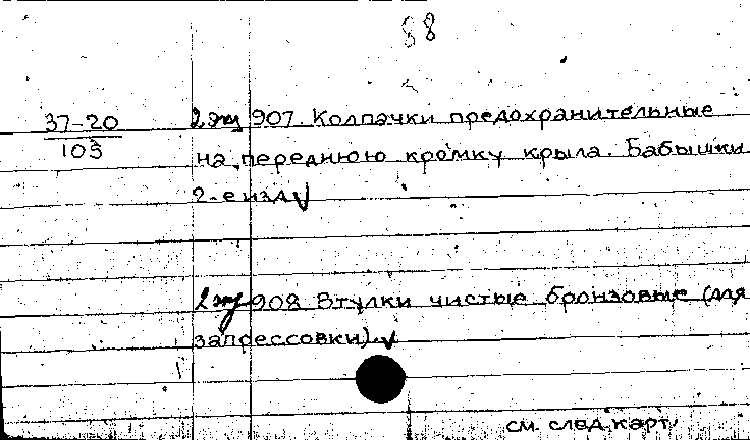 88
37-20 2 экз 907. Колпачки предохранительные
103 на переднюю кромку крыла. Бабышки
2-е изд. √
2 экз 908 Втулки чистые бронзовые (для
запрессовки). √
см. след. карт.